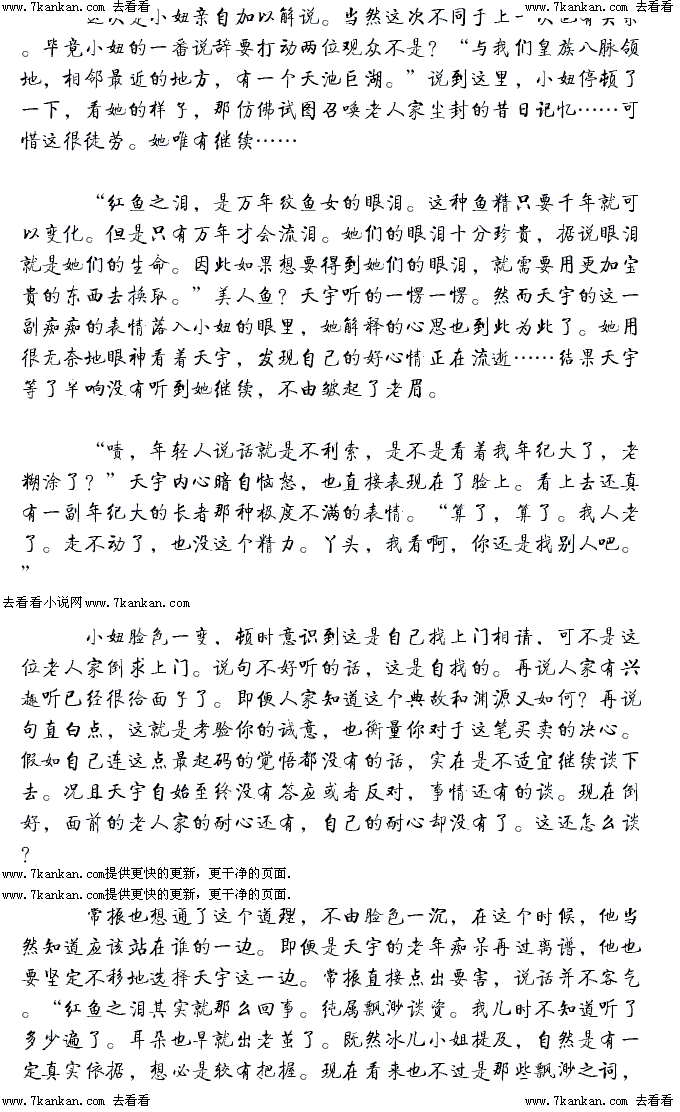 www.7kankan.com 去看看 www.7kankan.com 去看看
。毕竟小妞的一番说辞要打动两位观众不是？“与我们皇族八脉领
地，相邻最近的地方，有一个天池巨湖。”说到这里，小妞停顿了
一下，看她的样子，那仿佛试图召唤老人家尘封的昔日记忆……可
惜这很徒劳。她唯有继续……
“红鱼之泪，是万年纹鱼女的眼泪。这种鱼精只要千年就可
以变化。但是只有万年才会流泪。她们的眼泪十分珍贵，据说眼泪
就是她们的生命。因此如果想要得到她们的眼泪，就需要用更加宝
贵的东西去换取。”美人鱼？天宇听的一愣一愣。然而天宇的这一
副痴痴的表情落入小妞的眼里，她解释的心思也到此为此了。她用
很无奈地眼神看着天宇，发现自己的好心情正在流逝……结果天宇
等了半响没有听到她继续，不由皱起了老眉。
“啧，年轻人说话就是不利索，是不是看着我年纪大了，老
糊涂了？”天宇内心暗自恼怒，也直接表现在了脸上。看上去还真
有一副年纪大的长者那种极度不满的表情。“算了，算了。我人老
了。走不动了，也没这个精力。丫头，我看啊，你还是找别人吧。
”
去看看小说网www.7kankan.com
小妞脸色一变，顿时意识到这是自己找上门相请，可不是这
位老人家倒求上门。说句不好听的话，这是自找的。再说人家有兴
趣听已经很给面子了。即便人家知道这个典故和渊源又如何？再说
句直白点，这就是考验你的诚意，也衡量你对于这笔买卖的决心。
假如自己连这点最起码的觉悟都没有的话，实在是不适宜继续谈下
去。况且天宇自始至终没有答应或者反对，事情还有的谈。现在倒
好，面前的老人家的耐心还有，自己的耐心却没有了。这还怎么谈
？
www.7kankan.com提供更快的更新，更干净的页面.
www.7kankan.com提供更快的更新，更干净的页面.
常振也想通了这个道理，不由脸色一沉，在这个时候，他当
然知道应该站在谁的一边。即便是天宇的老年痴呆再过离谱，他也
要坚定不移地选择天宇这一边。常振直接点出要害，说话并不客气
。“红鱼之泪其实就那么回事。纯属飘渺谈资。我儿时不知道听了
多少遍了。耳朵也早就出老茧了。既然冰儿小姐提及，自然是有一
定真实依据，想必是较有把握。现在看来也不过是那些飘渺之词，
www.7kankan.com 去看看 www.7kankan.com 去看看